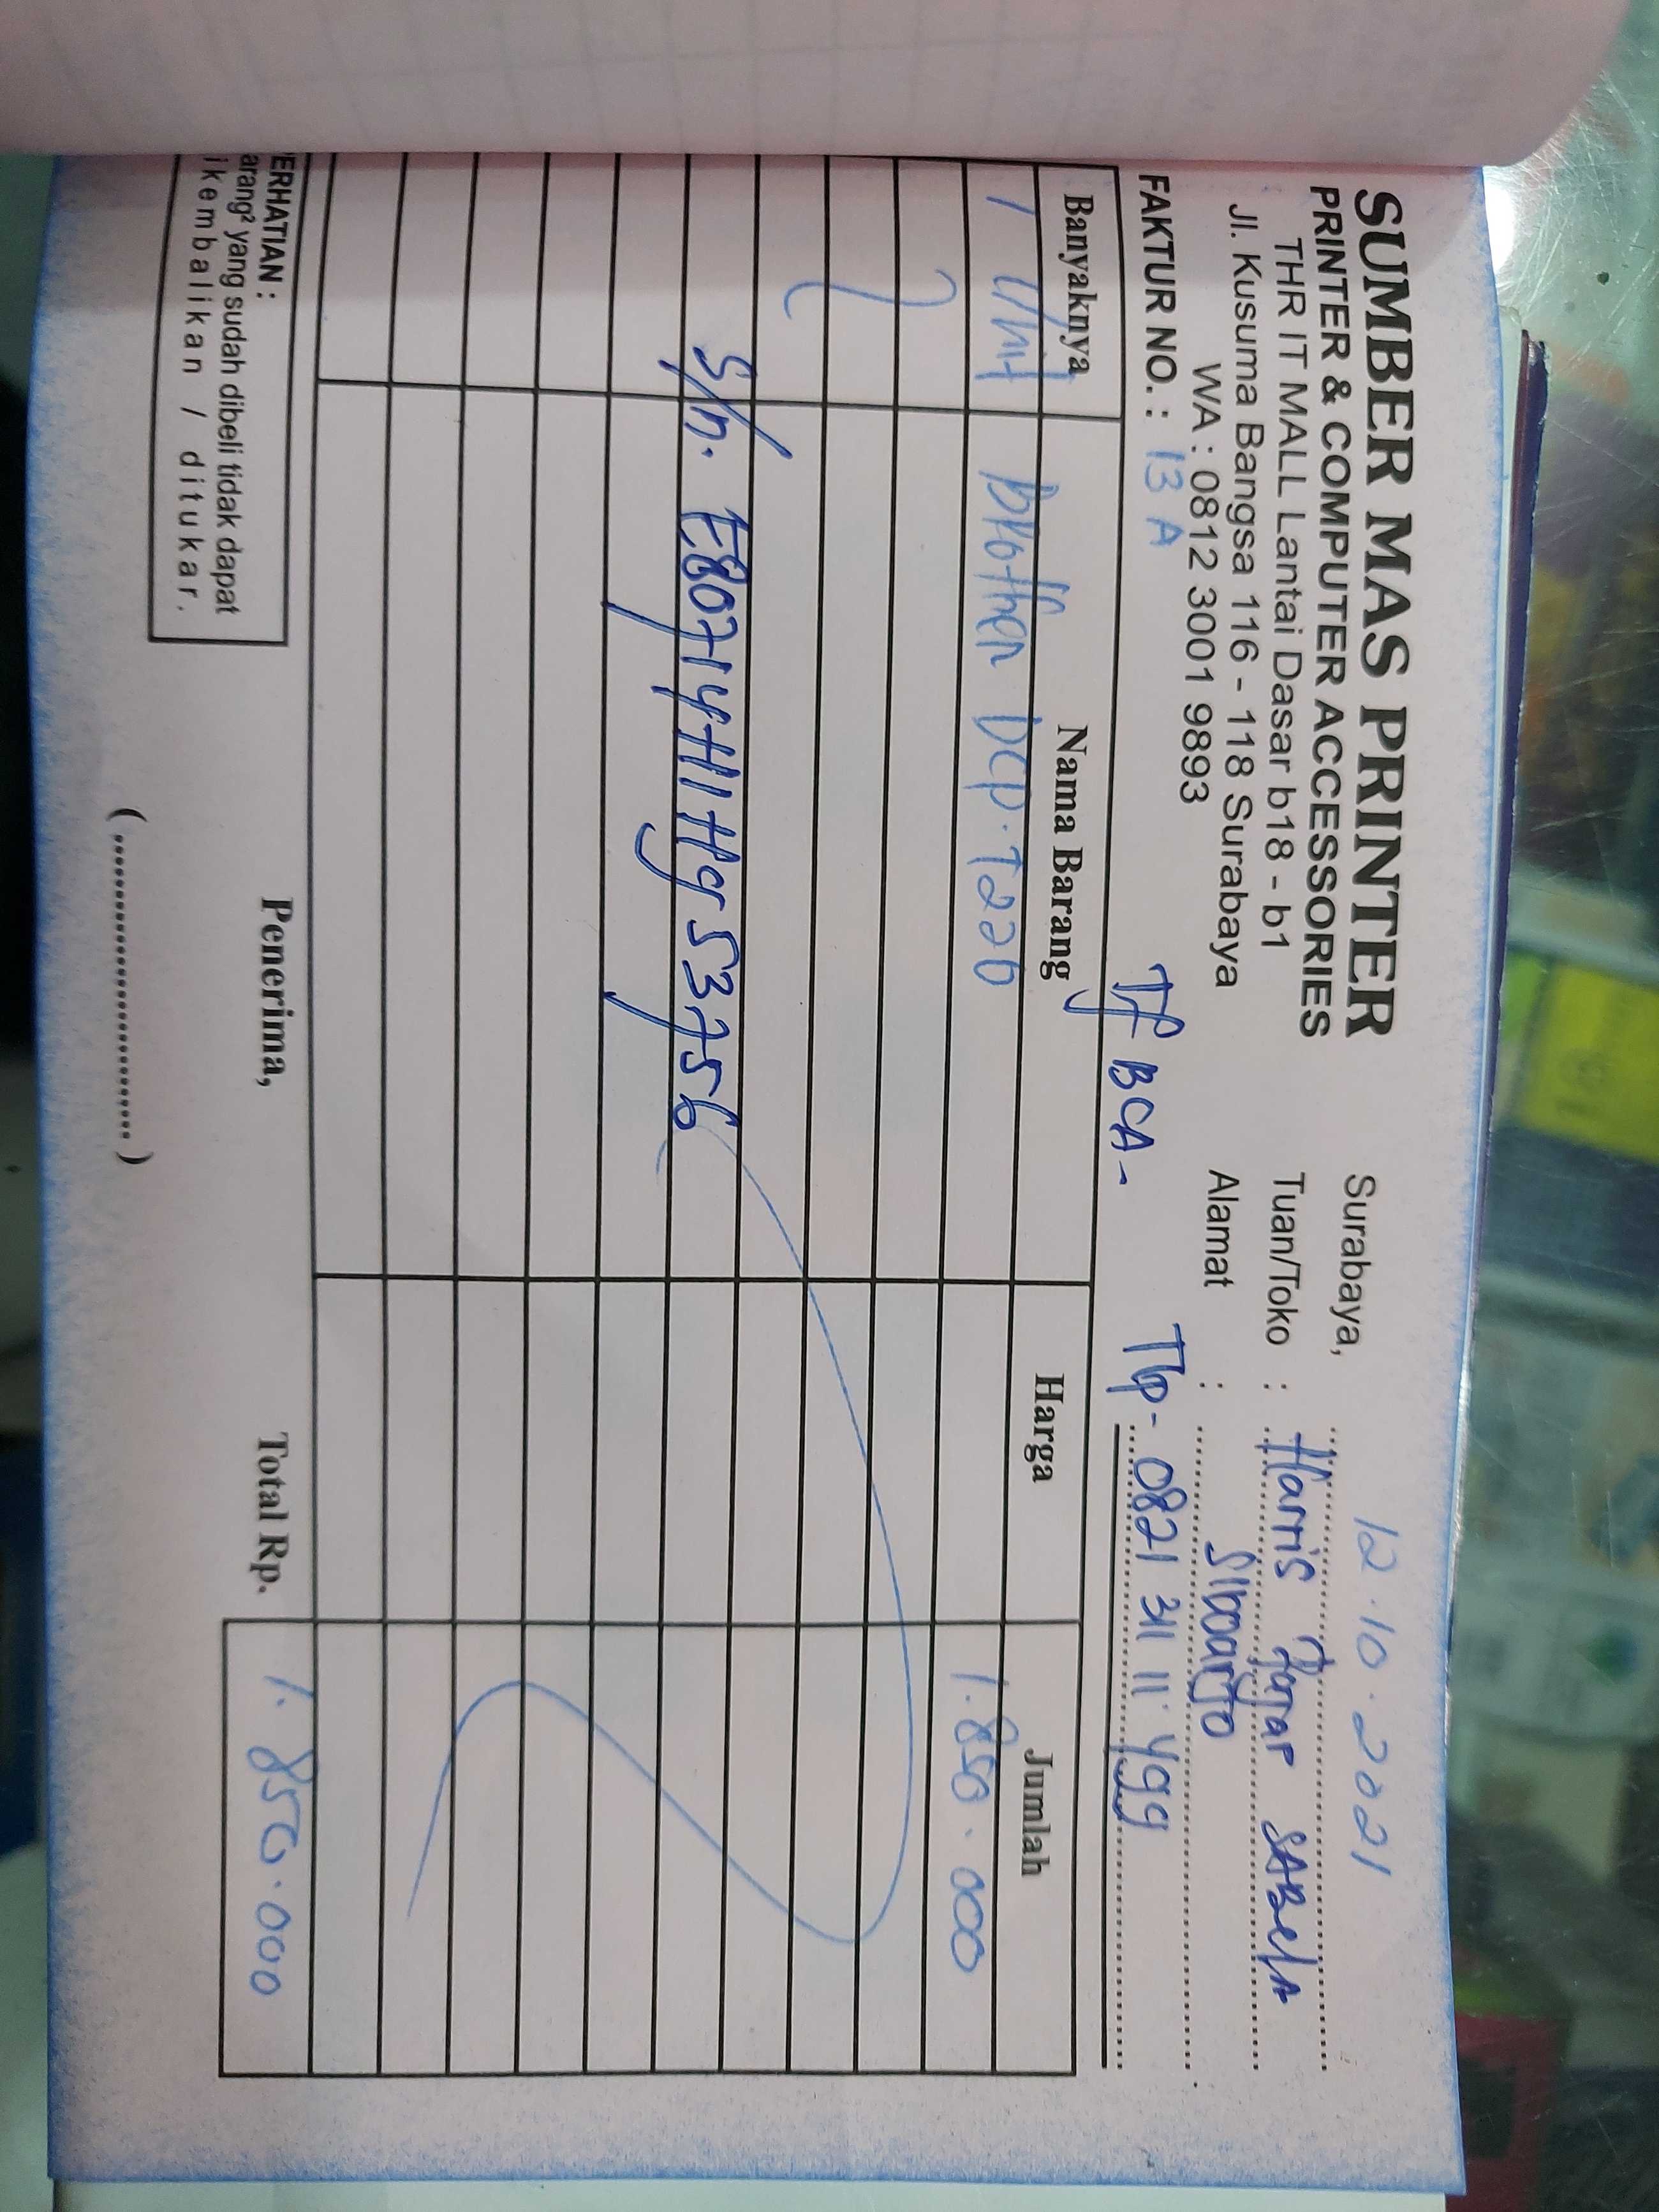 SUMBER MAS PRINTER
PRINTER & COMPUTER ACCESSORIES
THR IT MALL Lantai Dasar b18 - b1
Jl. Kusuma Bangsa 116 - 118 Surabaya
WA : 0812 3001 9893
FAKTUR NO. : 13 A
TF BCA -
Surabaya, 12.10.2021
Tuan/Toko : Harris Fajar SABelA
Alamat : SIDoarJo
Tlp - 0821 3111 1499
Banyaknya Nama Barang Harga Jumlah
1 Unit Brother DCP.T220 1.850.000
S/n. E80714H1H953756
ERHATIAN :
arang² yang sudah dibeli tidak dapat
ikembalikan / ditukar.
Penerima,
(............................)
Total Rp. 1.850.000